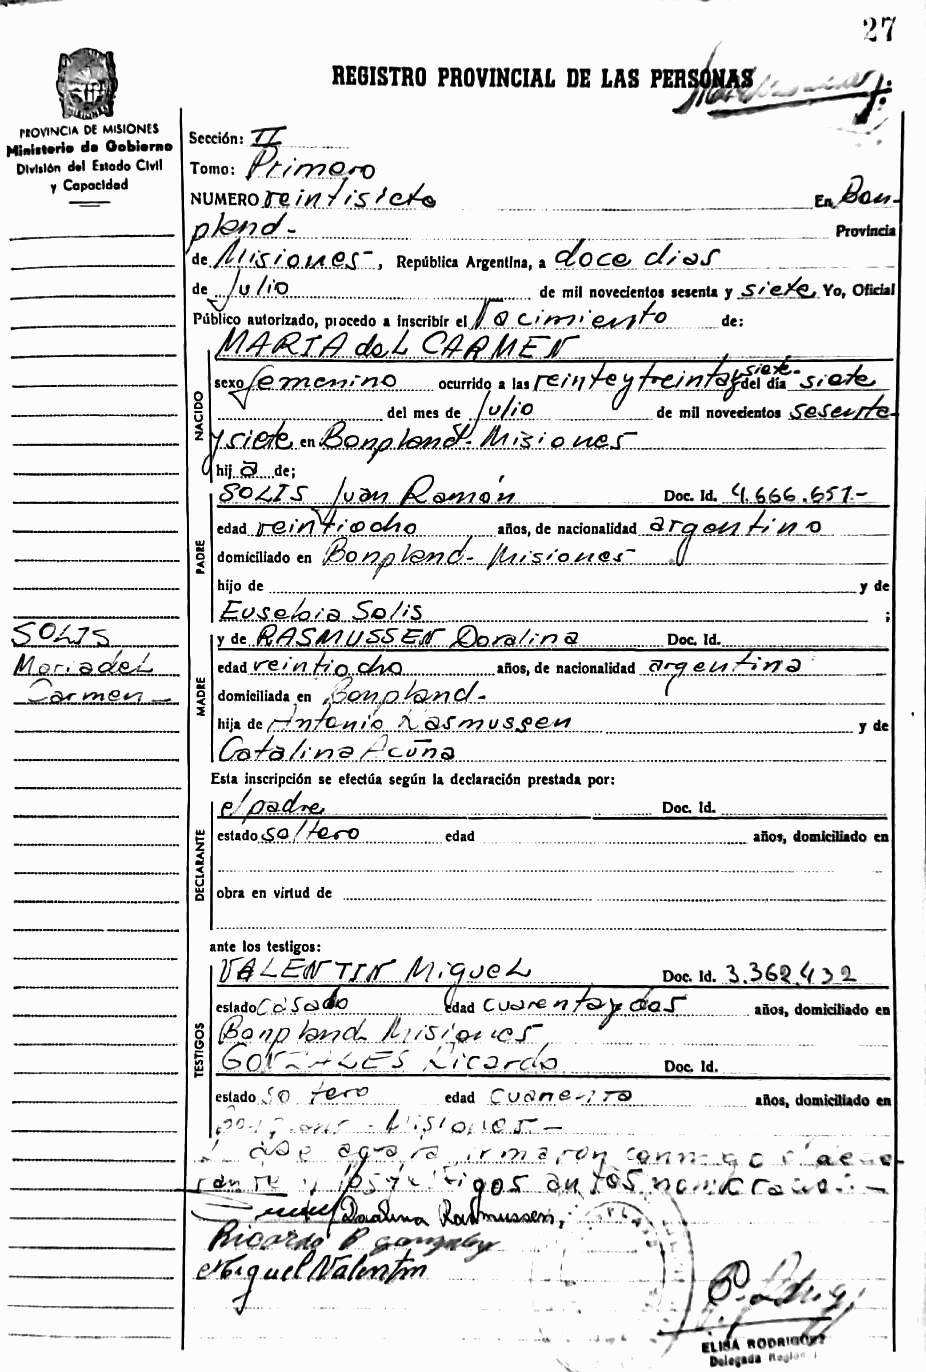 27
REGISTRO PROVINCIAL DE LAS PERSONAS
PROVINCIA DE MISIONES
Ministerio de Gobierno
División del Estado Civil
y Capacidad
Sección: II
Tomo: Primero
NUMERO veintisiete En Bon-
pland- Provincia
de Misiones-, República Argentina, a doce dias
de Julio de mil novecientos sesenta y siete Yo, Oficial
Público autorizado, procedo a inscribir el Nacimiento de:
NACIDO
MARIA deL CARMEN
sexo femenino ocurrido a las veinteytreintay siete- del día siete
del mes de Julio de mil novecientos sesenta-
y siete en Bonpland- Misiones
hija de;
PADRE
SOLIS Juan Ramón Doc. Id. 4.666.651-
edad veintiocho años, de nacionalidad argentino
domiciliado en Bonpland- Misiones
hijo de y de
Eusebia Solis ;
SOLIS
Maria del
Carmen-
MADRE
y de RASMUSSEN Doralina Doc. Id.
edad veintiocho años, de nacionalidad argentina
domiciliada en Bonpland-
hija de Antonio Rasmussen y de
Catalina Acuña
Esta inscripción se efectúa según la declaración prestada por:
DECLARANTE
el padre Doc. Id.
estado soltero edad años, domiciliado en
obra en virtud de
ante los testigos:
TESTIGOS
VALENTIN MigueL Doc. Id. 3.362.432
estado casado edad cuarentaydos años, domiciliado en
Bonpland Misiones
GONZALES Ricardo Doc. Id.
estado soltero edad cuarenta años, domiciliado en
Misiones-
firmaron conmigo
rante y los testigos antes nombrados.-
Doralina Rasmussen,
Ricardo P gonzalez
Miguel Valentin
ELISA RODRIGUEZ
Delegada Regional